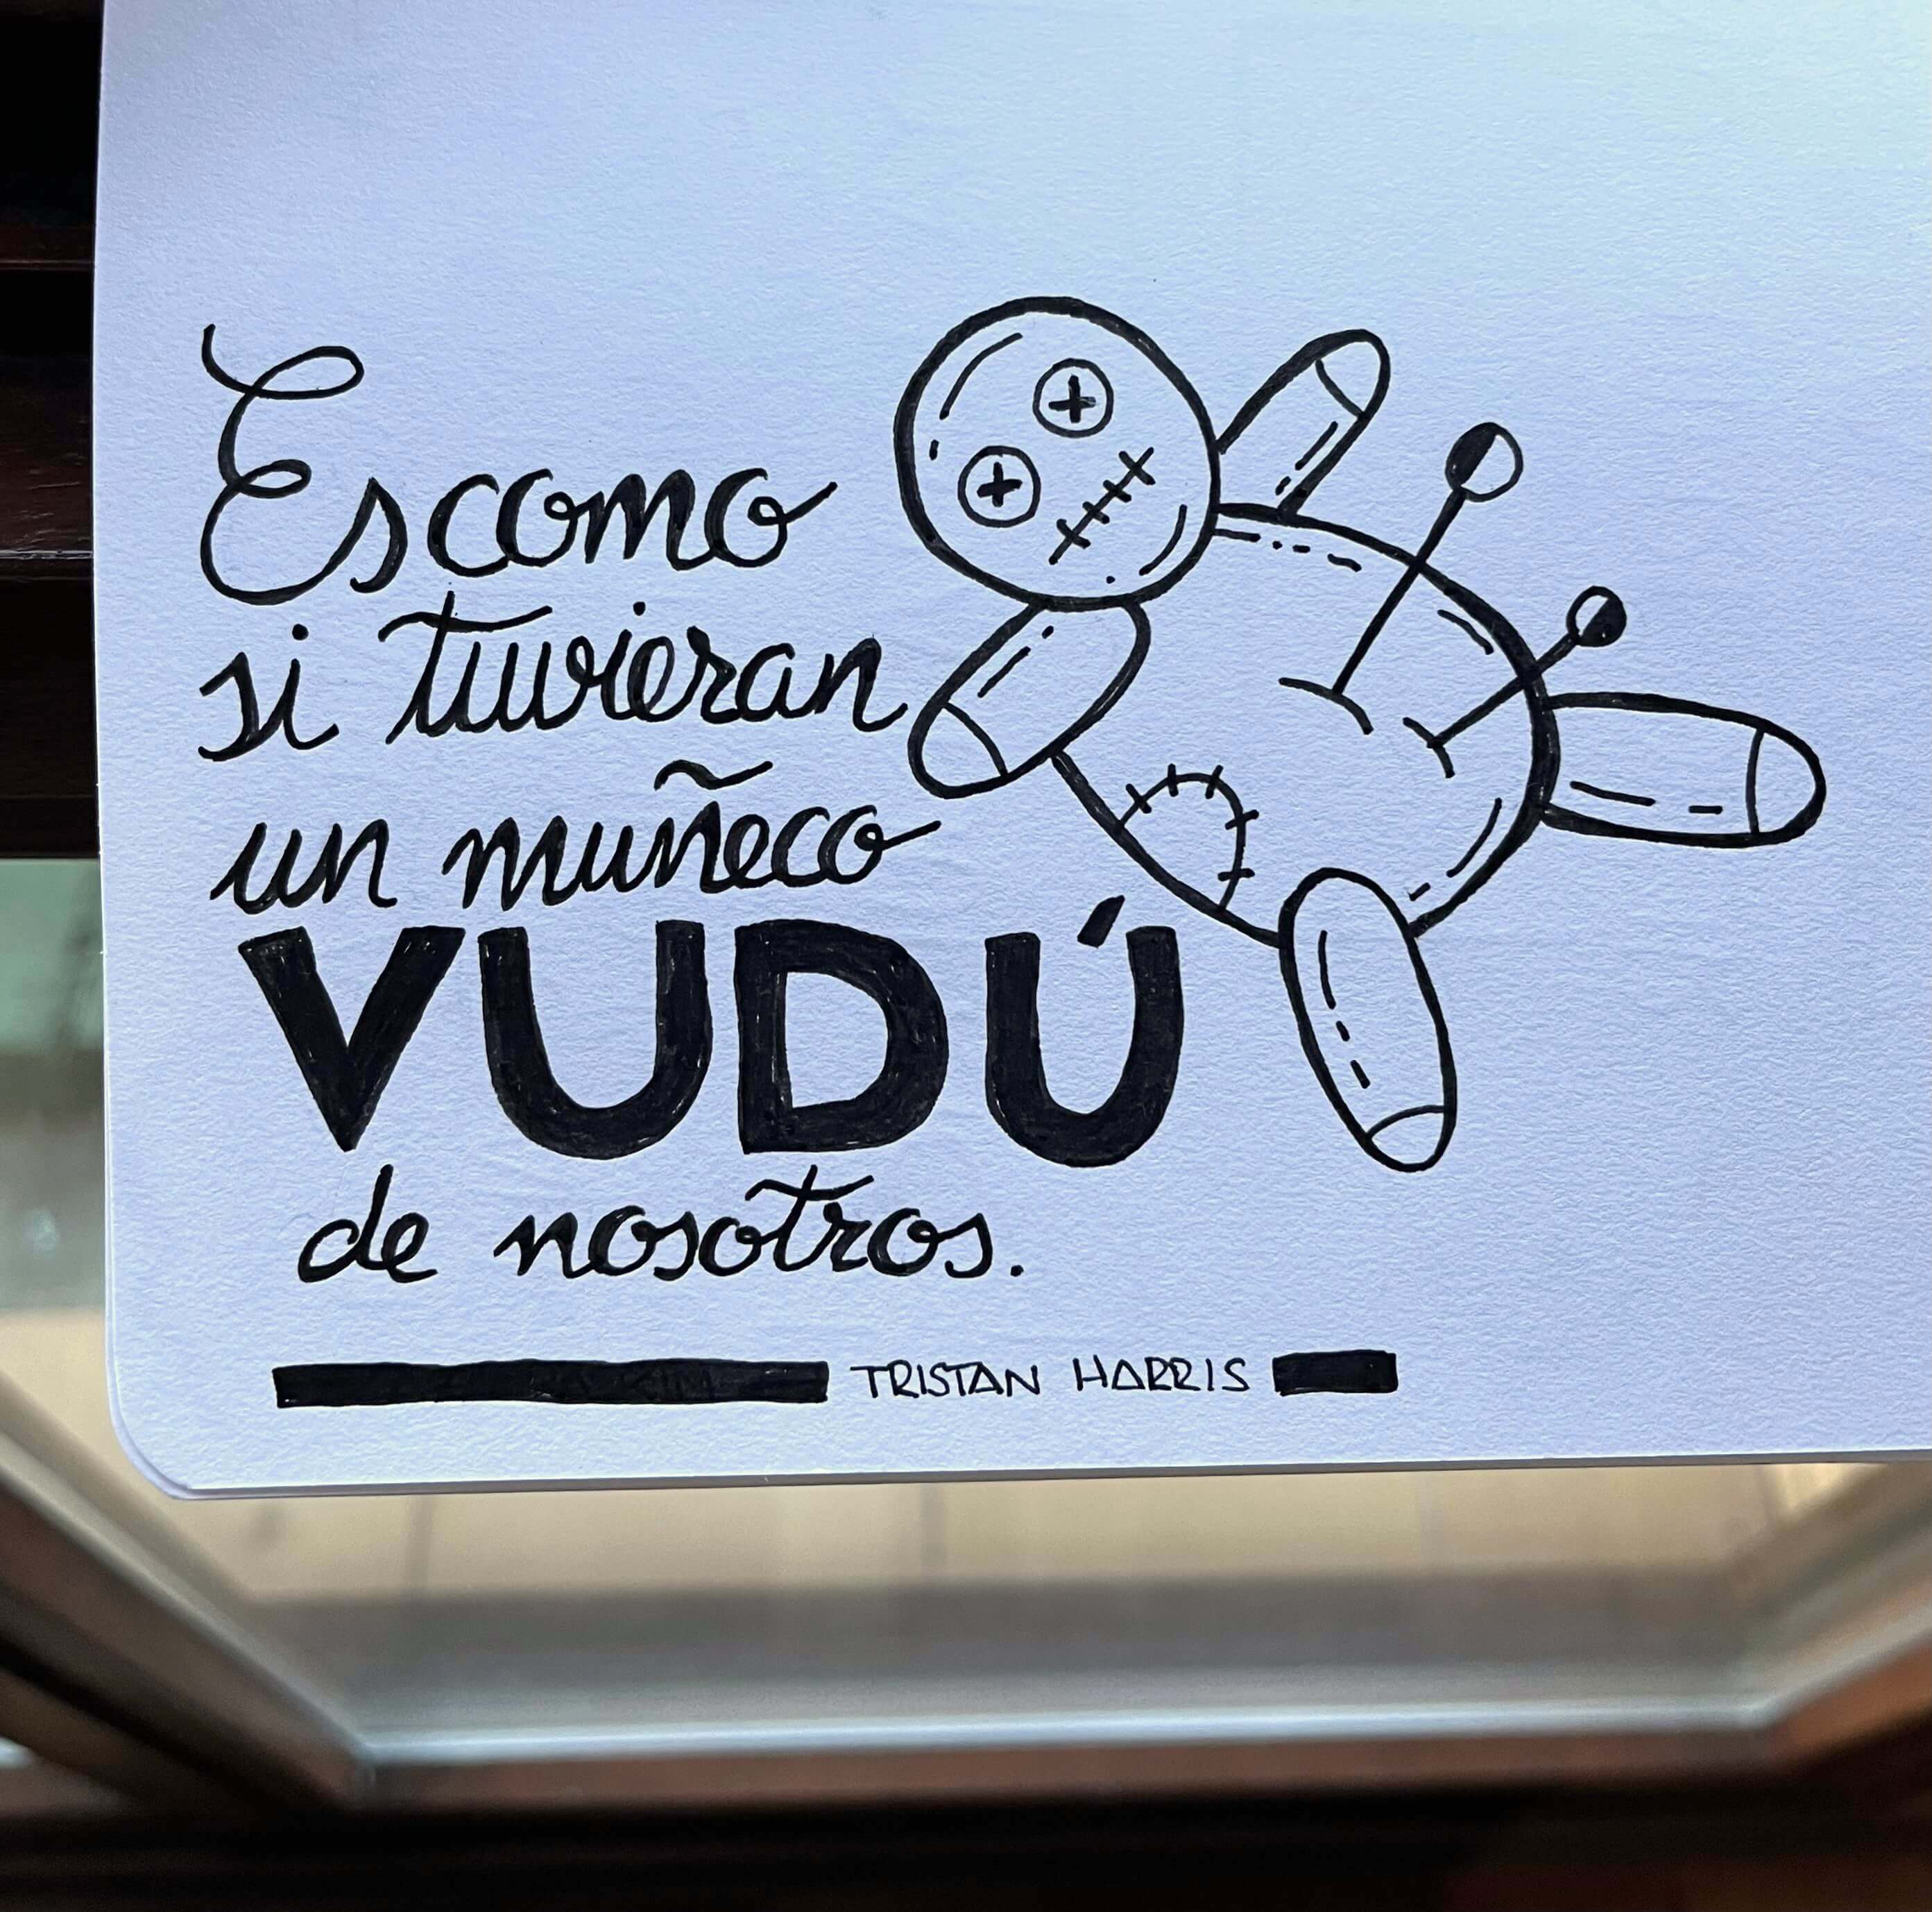 Es como
si tuvieran
un muñeco
VUDÚ
de nosotros.
TRISTAN HARRIS